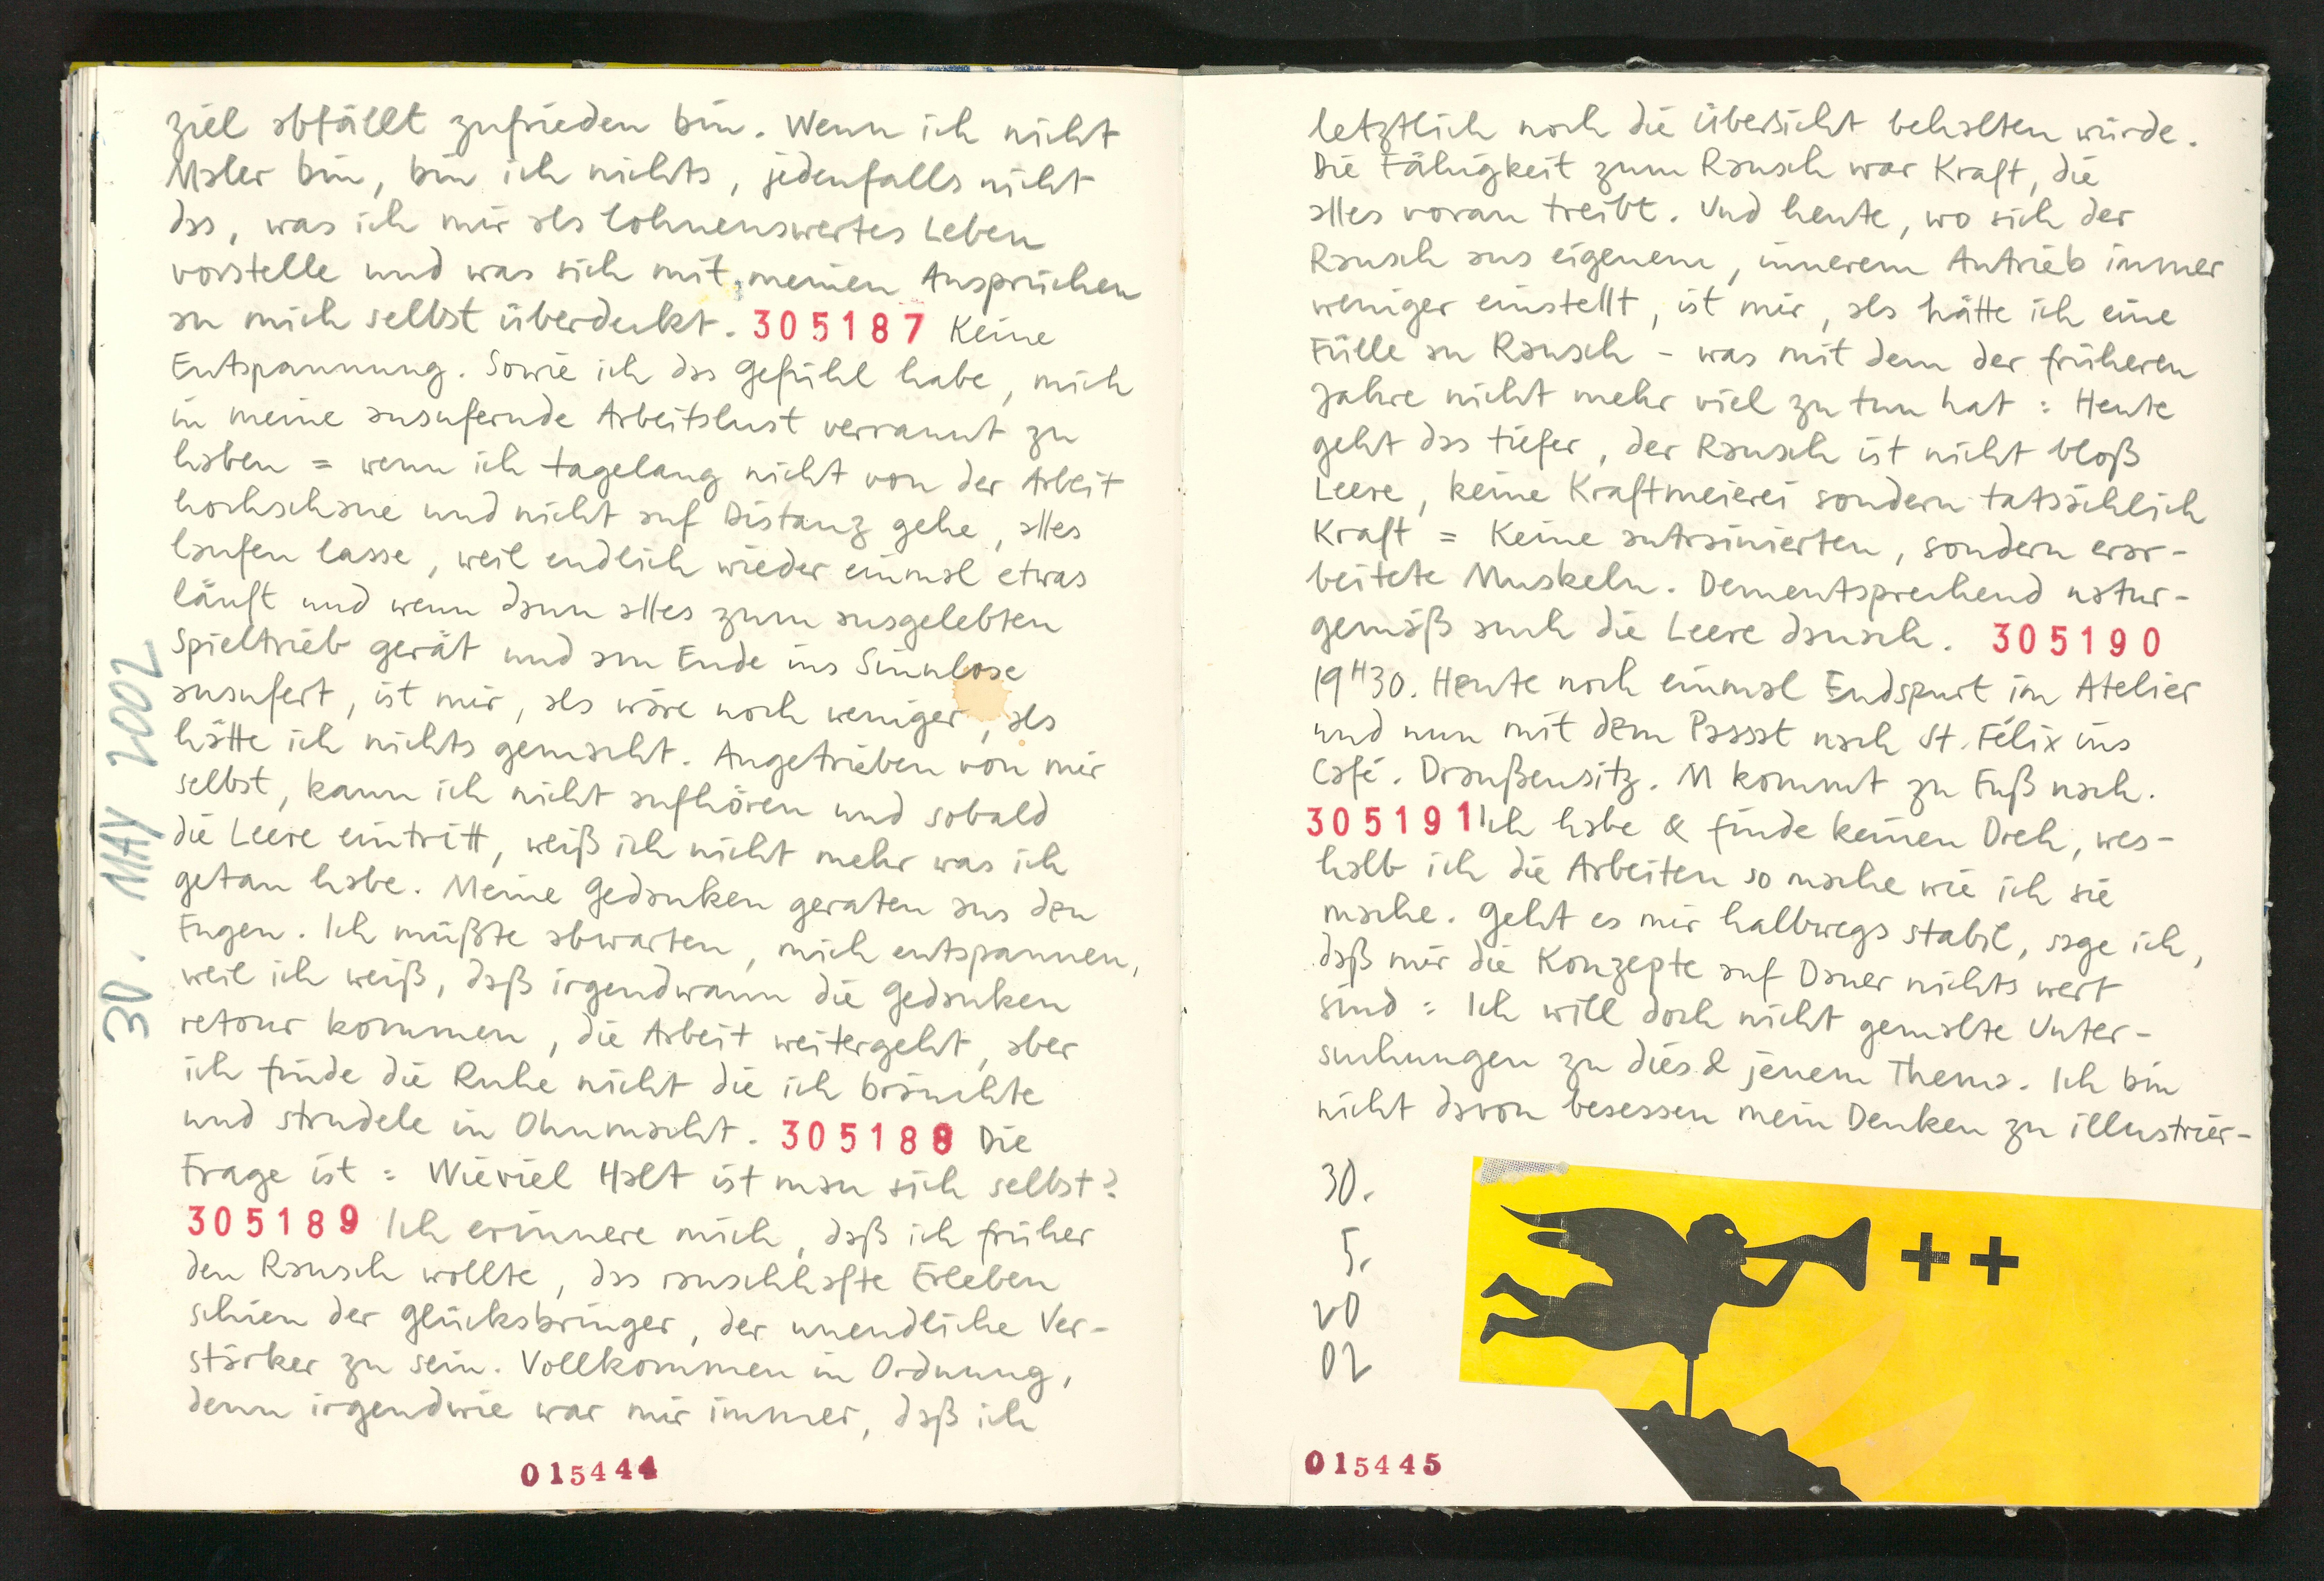 30. MAY 2002
ziel abfällt zufrieden bin. Wenn ich nicht
Maler bin, bin ich nichts, jedenfalls nicht
das, was ich mir als lohnenswertes Leben
vorstelle und was sich mit meinen Ansprüchen
an mich selbst überdeckt. 305187 Keine
Entspannung. Sowie ich das Gefühl habe, mich
in meine ausufernde Arbeitslust verrannt zu
haben = wenn ich tagelang nicht von der Arbeit
hochschaue und nicht auf Distanz gehe, alles
laufen lasse, weil endlich wieder einmal etwas
läuft und wenn dann alles zum ausgelebten
Spieltrieb gerät und am Ende ins Sinnlose
ausufert, ist mir, als wäre noch weniger, als
hätte ich nichts gemacht. Angetrieben von mir
selbst, kann ich nicht aufhören und sobald
die Leere eintritt, weiß ich nicht mehr was ich
getan habe. Meine Gedanken geraten aus den
Fugen. Ich müßte abwarten, mich entspannen,
weil ich weiß, daß irgendwann die Gedanken
retour kommen, die Arbeit weitergeht, aber
ich finde die Ruhe nicht die ich bräuchte
und strudele in Ohnmacht. 305188 Die
Frage ist : Wieviel Halt ist man sich selbst?
305189 Ich erinnere mich, daß ich früher
den Rausch wollte, das rauschhafte Erleben
schien der Glücksbringer, der unendliche Ver-
stärker zu sein. Vollkommen in Ordnung,
denn irgendwie war mir immer, daß ich
015444
letztlich noch die Übersicht behalten würde.
Die Fähigkeit zum Rausch war Kraft, die
alles voran treibt. Und heute, wo sich der
Rausch aus eigenem, innerem Antrieb immer
weniger einstellt, ist mir, als hätte ich eine
Fülle an Rausch - was mit dem der früheren
Jahre nicht mehr viel zu tun hat : Heute
geht das tiefer, der Rausch ist nicht bloß
Leere, keine Kraftmeierei sondern tatsächlich
Kraft = Keine antrainierten, sondern erar-
beitete Muskeln. Dementsprechend natur-
gemäß auch die Leere danach. 305190
19H30. Heute noch einmal Endspurt im Atelier
und nun mit dem Passat nach St. Félix ins
Café. Draußensitz. M kommt zu Fuß nach.
305191 Ich habe & finde keinen Dreh, wes-
halb ich die Arbeiten so mache wie ich sie
mache. Geht es mir halbwegs stabil, sage ich,
daß mir die Konzepte auf Dauer nichts wert
sind : Ich will doch nicht gemalte Unter-
suchungen zu dies & jenem Thema. Ich bin
nicht davon besessen mein Denken zu illustrier-
30.
5.
20
02
++
015445